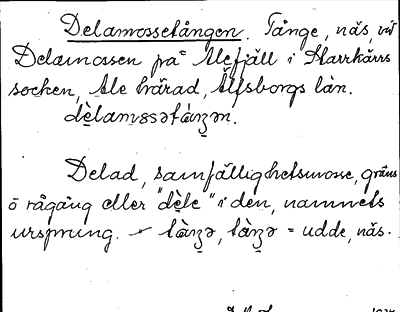 Delamossetången. Tånge, näs, vid
Delamossen på Alefjäll i Starrkärrs
socken, Ale härad, Älfsborgs län.
dèlamɞsətàŋʒən.
Delad, samfällighetsmosse, gräns
o rågång eller "dèle" i den, namnets
ursprung. - tàŋʒə, tàŋʒə = udde, näs.